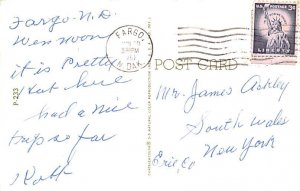 Fargo - N.D.
Wes noon
it is Pretty
Hot here
had a nice
trip so far
P-233
FARGO
PM
N. DAK.
POST CARD
U.S. POSTAGE
3¢
LIBERTY
Mr. James Ashley
South Wales
Erie Co New York